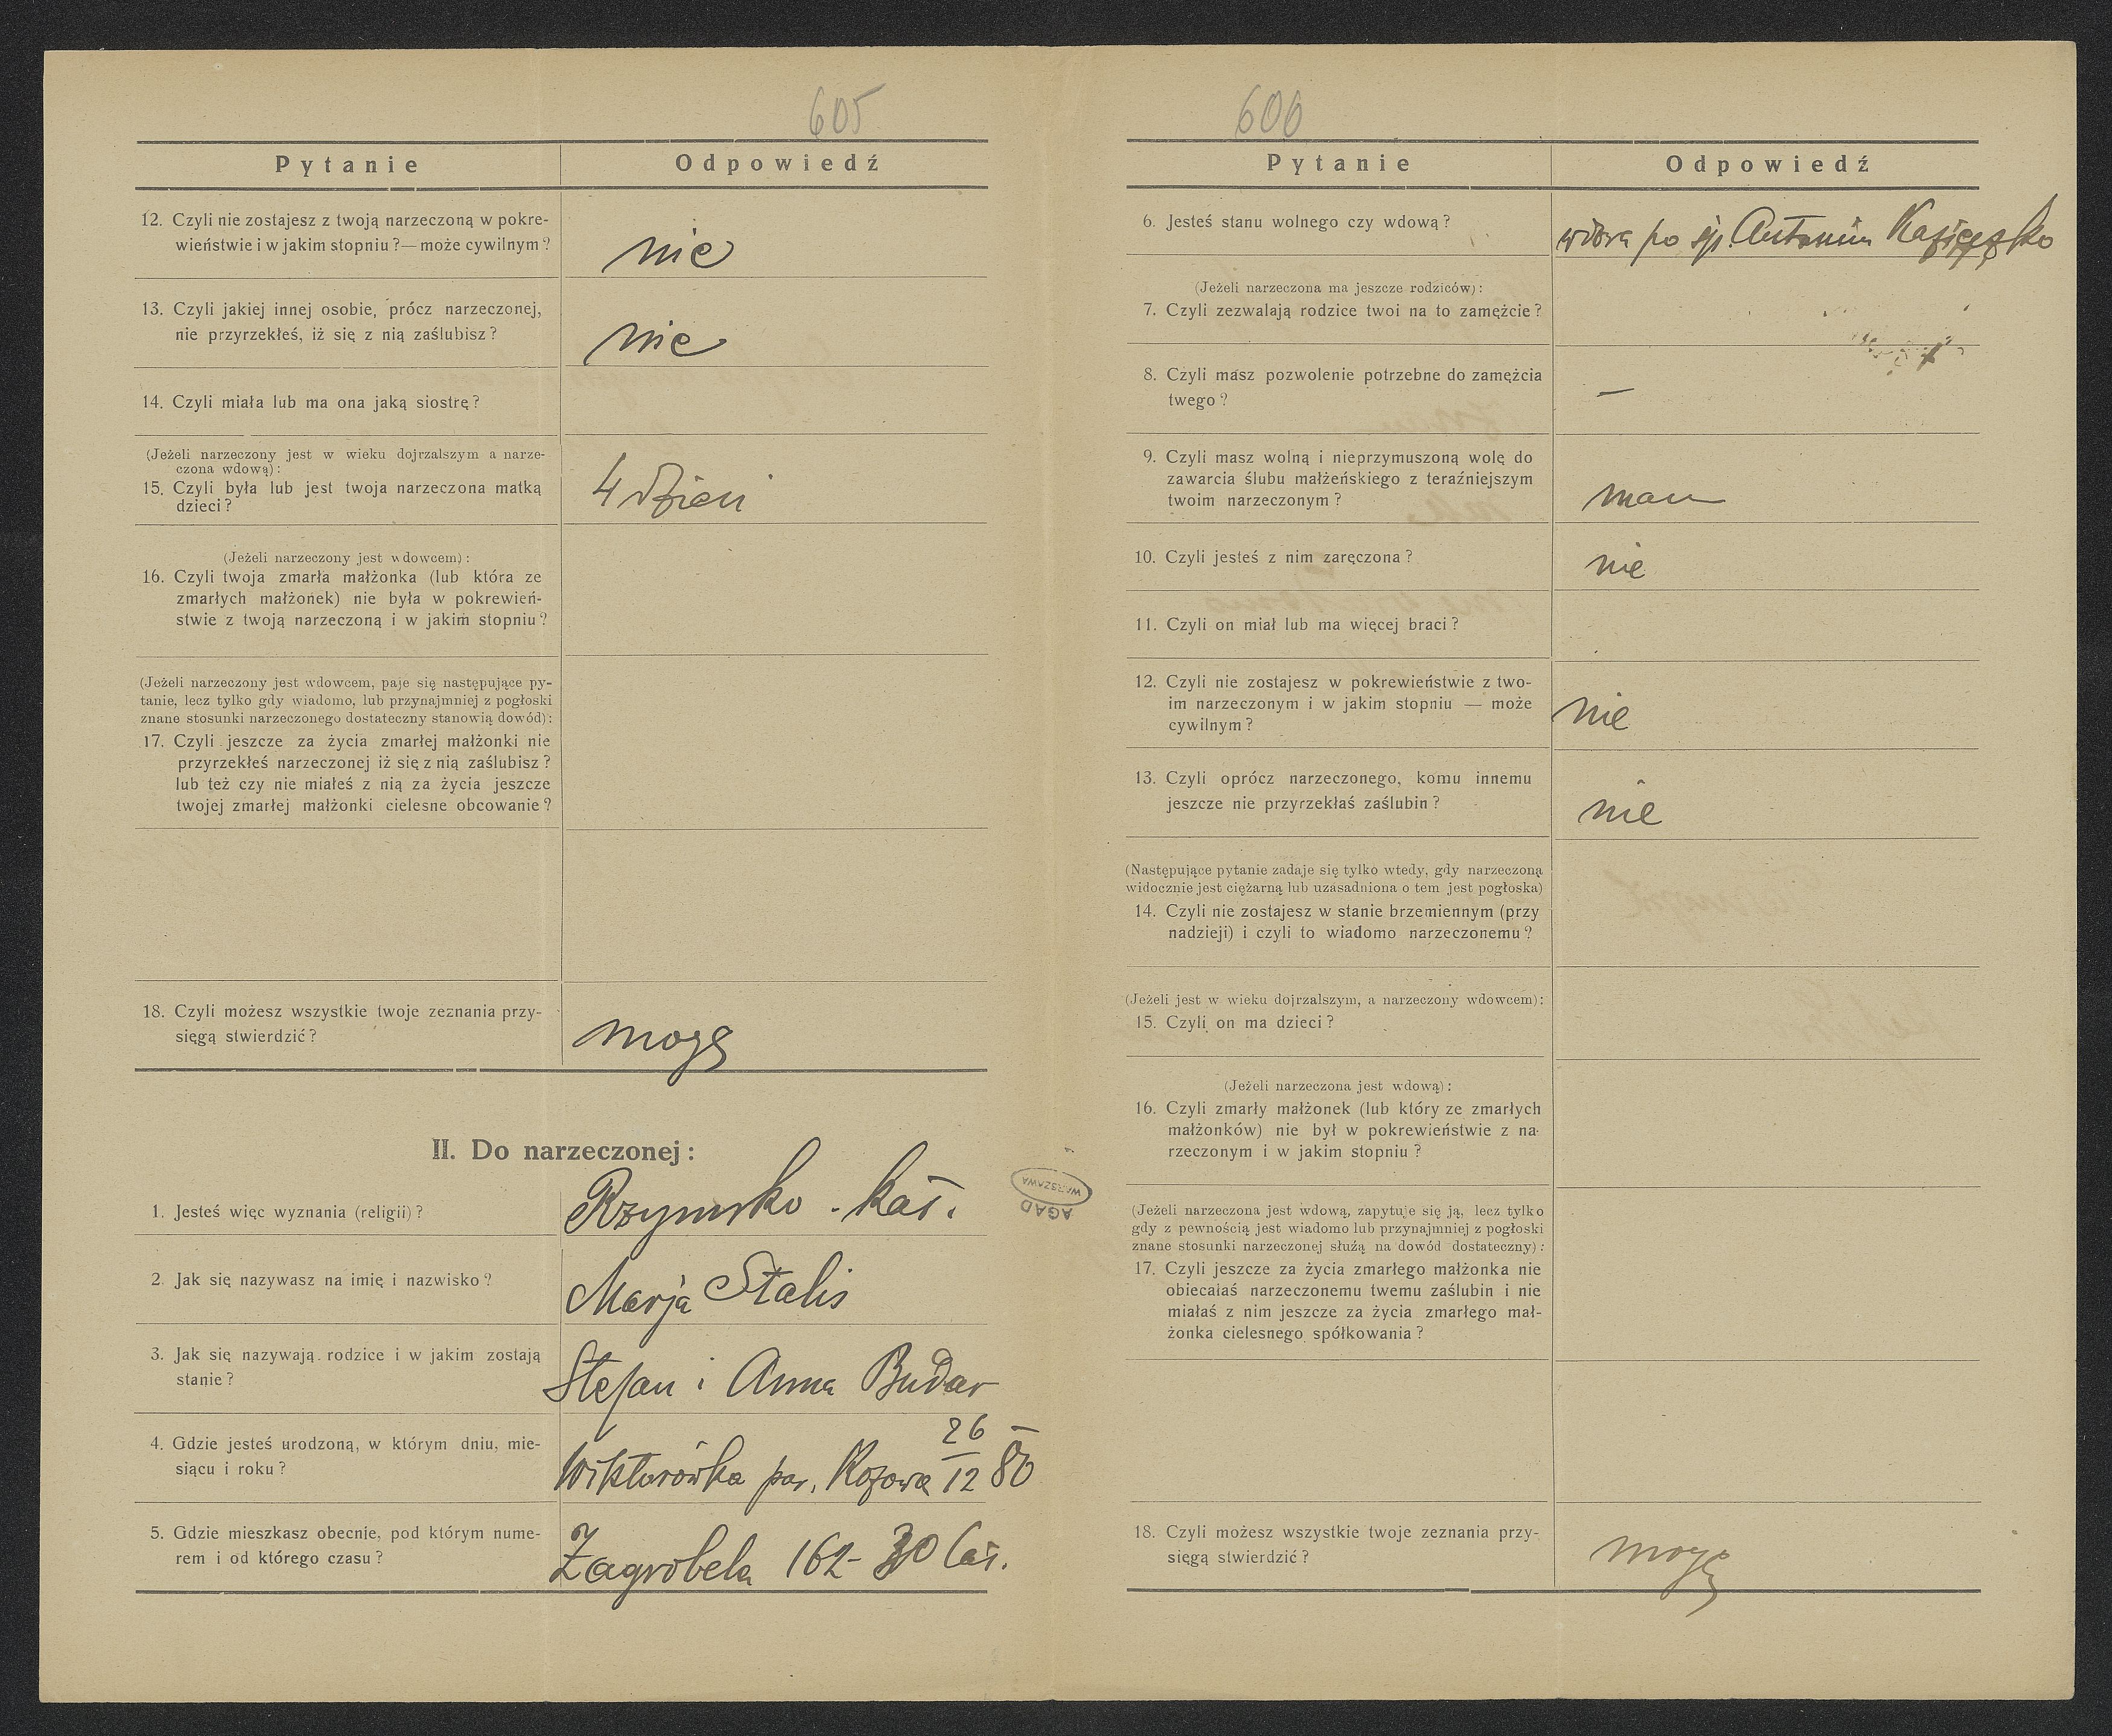 605
Pytanie Odpowiedź
12. Czyli nie zostajesz z twoją narzeczoną w pokre-
wieństwie i w jakim stopniu?—może cywilnym?
nie
13. Czyli jakiej innej osobie, prócz narzeczonej,
nie przyrzekłeś, iż się z nią zaślubisz?
nie
14. Czyli miała lub ma ona jaką siostrę?
(Jeżeli narzeczony jest w wieku dojrzalszym a narze-
czona wdową):
15. Czyli była lub jest twoja narzeczona matką
dzieci?
4 dzieci
(Jeżeli narzeczony jest wdowcem):
16. Czyli twoja zmarła małżonka (lub która ze
zmarłych małżonek) nie była w pokrewień-
stwie z twoją narzeczoną i w jakim stopniu?
(Jeżeli narzeczony jest wdowcem, paje się następujące py-
tanie, lecz tylko gdy wiadomo, lub przynajmniej z pogłoski
znane stosunki narzeczonego dostateczny stanowią dowód):
17. Czyli jeszcze za życia zmarłej małżonki nie
przyrzekłeś narzeczonej iż się z nią zaślubisz?
lub też czy nie miałeś z nią za życia jeszcze
twojej zmarłej małżonki cielesne obcowanie?
18. Czyli możesz wszystkie twoje zeznania przy-
sięgą stwierdzić?
mogę
II. Do narzeczonej:
1. Jesteś więc wyznania (religii)?
Rzymsko-kat.
2. Jak się nazywasz na imię i nazwisko?
Marja Stalis
3. Jak się nazywają rodzice i w jakim zostają
stanie?
Stefan i Anna Budar
4. Gdzie jesteś urodzoną, w którym dniu, mie-
siącu i roku?
Wiktorówka par. Kozowa 26/12 80
5. Gdzie mieszkasz obecnie, pod którym nume-
rem i od którego czasu?
Zagrobela 162 - 30 lat.
AGAD
WARSZAWA
606
Pytanie Odpowiedź
6. Jesteś stanu wolnego czy wdową?
wdowa po śp. Antonim
(Jeżeli narzeczona ma jeszcze rodziców):
7. Czyli zezwalają rodzice twoi na to zamężcie?
8. Czyli masz pozwolenie potrzebne do zamężcia
twego?
—
9. Czyli masz wolną i nieprzymuszoną wolę do
zawarcia ślubu małżeńskiego z teraźniejszym
twoim narzeczonym?
mam
10. Czyli jesteś z nim zaręczona?
nie
11. Czyli on miał lub ma więcej braci?
12. Czyli nie zostajesz w pokrewieństwie z two-
im narzeczonym i w jakim stopniu — może
cywilnym?
nie
13. Czyli oprócz narzeczonego, komu innemu
jeszcze nie przyrzekłaś zaślubin?
nie
(Następujące pytanie zadaje się tylko wtedy, gdy narzeczoną
widocznie jest ciężarną lub uzasadniona o tem jest pogłoska)
14. Czyli nie zostajesz w stanie brzemiennym (przy
nadzieji) i czyli to wiadomo narzeczonemu?
(Jeżeli jest w wieku dojrzalszym, a narzeczony wdowcem):
15. Czyli on ma dzieci?
(Jeżeli narzeczona jest wdową):
16. Czyli zmarły małżonek (lub który ze zmarłych
małżonków) nie był w pokrewieństwie z na-
rzeczonym i w jakim stopniu?
(Jeżeli narzeczona jest wdową, zapytuje się ją, lecz tylko
gdy z pewnością jest wiadomo lub przynajmniej z pogłoski
znane stosunki narzeczonej służą na dowód dostateczny):
17. Czyli jeszcze za życia zmarłego małżonka nie
obiecałaś narzeczonemu twemu zaślubin i nie
miałaś z nim jeszcze za życia zmarłego mał-
żonka cielesnego spółkowania?
18. Czyli możesz wszystkie twoje zeznania przy-
sięgą stwierdzić?
mogę